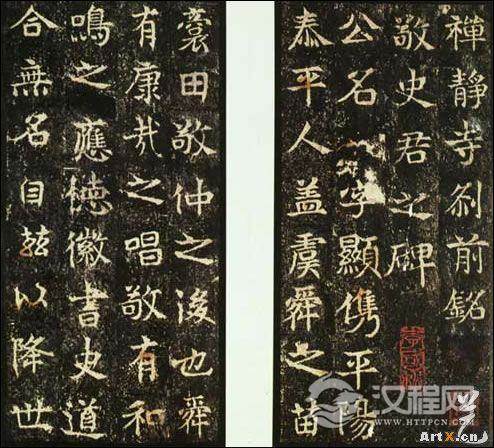 禅静寺剎前銘
敬史君之碑
公名𩔖字顯儁平陽
泰平人盖虞舜之苗
裔田敬仲之後也舜
有康哉之唱敬有和
鳴之應徳徽書史道
合無名自玆以降世
汉程网
WWW.HTTPCN.COM
ArtX.cn